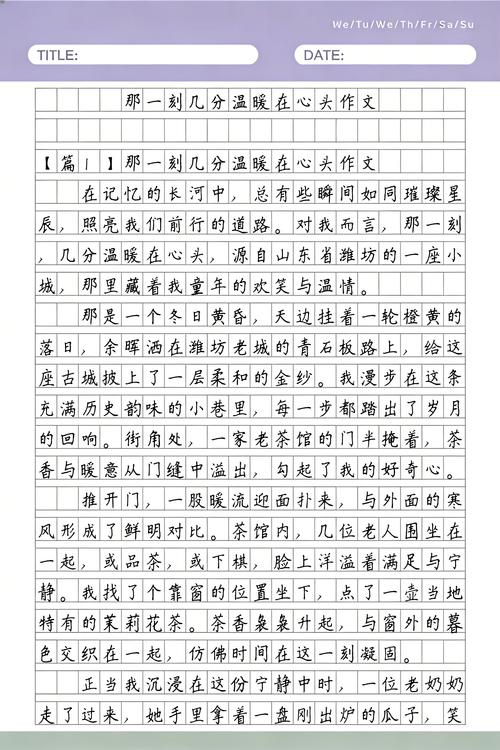 We/Tu/We/Th/Fr/Sa/Su
TITLE:
DATE:
那一刻几分温暖在心头作文
【篇1】那一刻几分温暖在心头作文
在记忆的长河中，总有些瞬间如同璀璨星
辰，照亮我们前行的道路。对我而言，那一刻
，几分温暖在心头，源自山东省潍坊的一座小
城，那里藏着我童年的欢笑与温情。
那是一个冬日黄昏，天边挂着一轮橙黄的
落日，余晖洒在潍坊老城的青石板路上，给这
座古城披上了一层柔和的金纱。我漫步在这条
充满历史韵味的小巷里，每一步都踏出了岁月
的回响。街角处，一家老茶馆的门半掩着，茶
香与暖意从门缝中溢出，勾起了我的好奇心。
推开门，一股暖流迎面扑来，与外面的寒
风形成了鲜明对比。茶馆内，几位老人围坐在
一起，或品茶，或下棋，脸上洋溢着满足与宁
静。我找了个靠窗的位置坐下，点了一壶当地
特有的茉莉花茶。茶香袅袅升起，与窗外的暮
色交织在一起，仿佛时间在这一刻凝固。
正当我沉浸在这份宁静中时，一位老奶奶
走了过来，她手里拿着一盘刚出炉的瓜子，笑